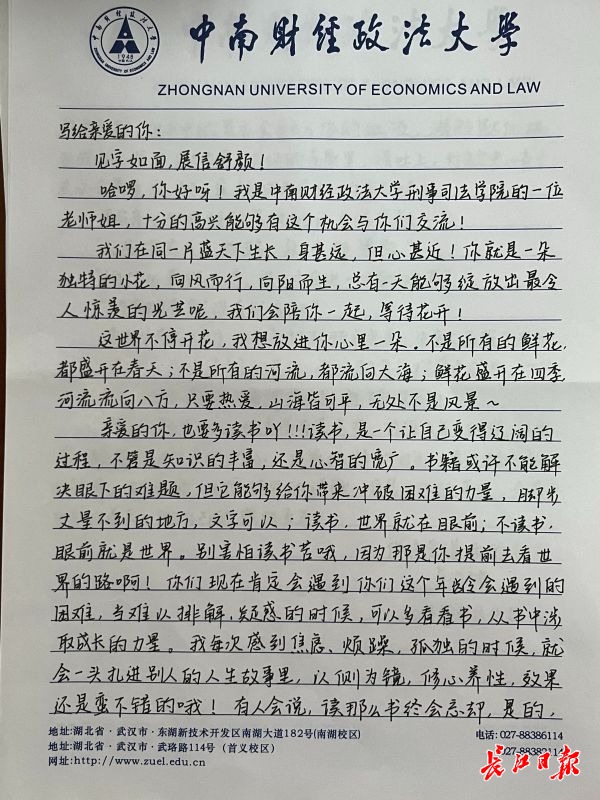 中南财经政法大学
1948
中南财经政法大学
ZHONGNAN UNIVERSITY OF ECONOMICS AND LAW
写给亲爱的你：
见字如面，展信舒颜！
哈啰，你好呀！我是中南财经政法大学刑事司法学院的一位
老师姐，十分的高兴能够有这个机会与你们交流！
我们在同一片蓝天下生长，身甚远，但心甚近！你就是一朵
独特的小花，向风而行，向阳而生，总有一天能够绽放出最令
人惊羡的光芒呢，我们会陪你一起，等待花开！
这世界不停开花，我想放进你心里一朵。不是所有的鲜花，
都盛开在春天；不是所有的河流，都流向大海；鲜花盛开在四季，
河流流向八方，只要热爱，山海皆可平，无处不是风景～
亲爱的你，也要多读书吖!!!读书，是一个让自己变得辽阔的
过程，不管是知识的丰富，还是心智的宽广。书籍或许不能解
决眼下的难题，但它能够给你带来冲破困难的力量，脚步
丈量不到的地方，文字可以；读书，世界就在眼前；不读书，
眼前就是世界。别害怕读书苦哦，因为那是你提前去看世
界的路啊！你们现在肯定会遇到你们这个年龄会遇到的
困难，当难以排解、疑惑的时候，可以多看看书，从书中涉
取成长的力量。我每次感到焦虑、烦躁，孤独的时候，就
会一头扎进别人的人生故事里，以侧为镜，修心养性，效果
还是蛮不错的哦！有人会说，读那么书终会忘却，是的，
地址:湖北省·武汉市·东湖新技术开发区南湖大道182号(南湖校区)
电话:027-88386114
地址:湖北省·武汉市·武珞路114号（首义校区）
027-88382114
网址:http://www.zuel.edu.cn
长江日报